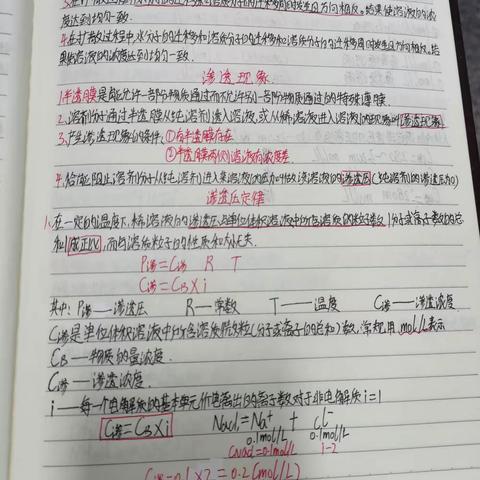 度达到均匀一致.
4.在扩散过程中水分子的迁移和溶质分子的迁移
果使溶液的浓度达到均匀一致.
渗透现象
1.半透膜是只能允许一部分物质通过而不允许另一部分物质通过的特殊薄膜.
2.溶剂分子通过半透膜从纯溶剂进入溶液,或从稀溶液进入溶液的现象叫渗透现象
3.产生渗透现象的条件:①有半透膜存在
②半透膜两侧溶液有浓度差.
4.恰能阻止溶剂分子从纯溶剂进入溶液的压力叫做该溶液的渗透压(纯溶剂的渗透压为0)
渗透压定律
1.在一定的温度下,稀溶液的渗透压与单位体积溶液中所含溶质的粒子数(分子或离子数的总
和)成正比,而与溶质粒子的性质和大小无关.
P渗=C渗 R T
C渗=CB×i
其中: P渗——渗透压 R——常数 T——温度 C渗——渗透浓度.
C渗是单位体积溶液中所含溶质颗粒(分子或离子的总和)数,常规用mol/L表示
CB——物质的量浓度.
C渗——渗透浓度.
i——每一个电解质的基本单元所电离出的离子数对于非电解质i=1
C渗=CB×i NaCl=Na+ + Cl-
0.1mol/L 0.1mol/L
CNaCl=0.1mol/L 1-2
C渗=0.1×2=0.2(mol/L)